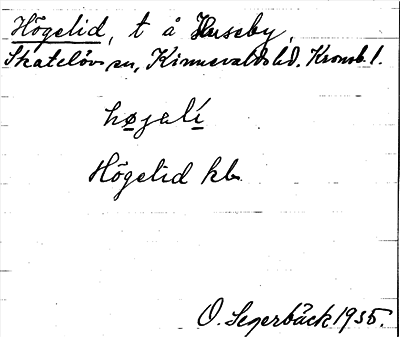 Högelid, t å Huseby,
Skatelövs sn, Kinnevalds hd. Kronob. l.
høgalí
Högelid kb
O. Segerbäck 1935.